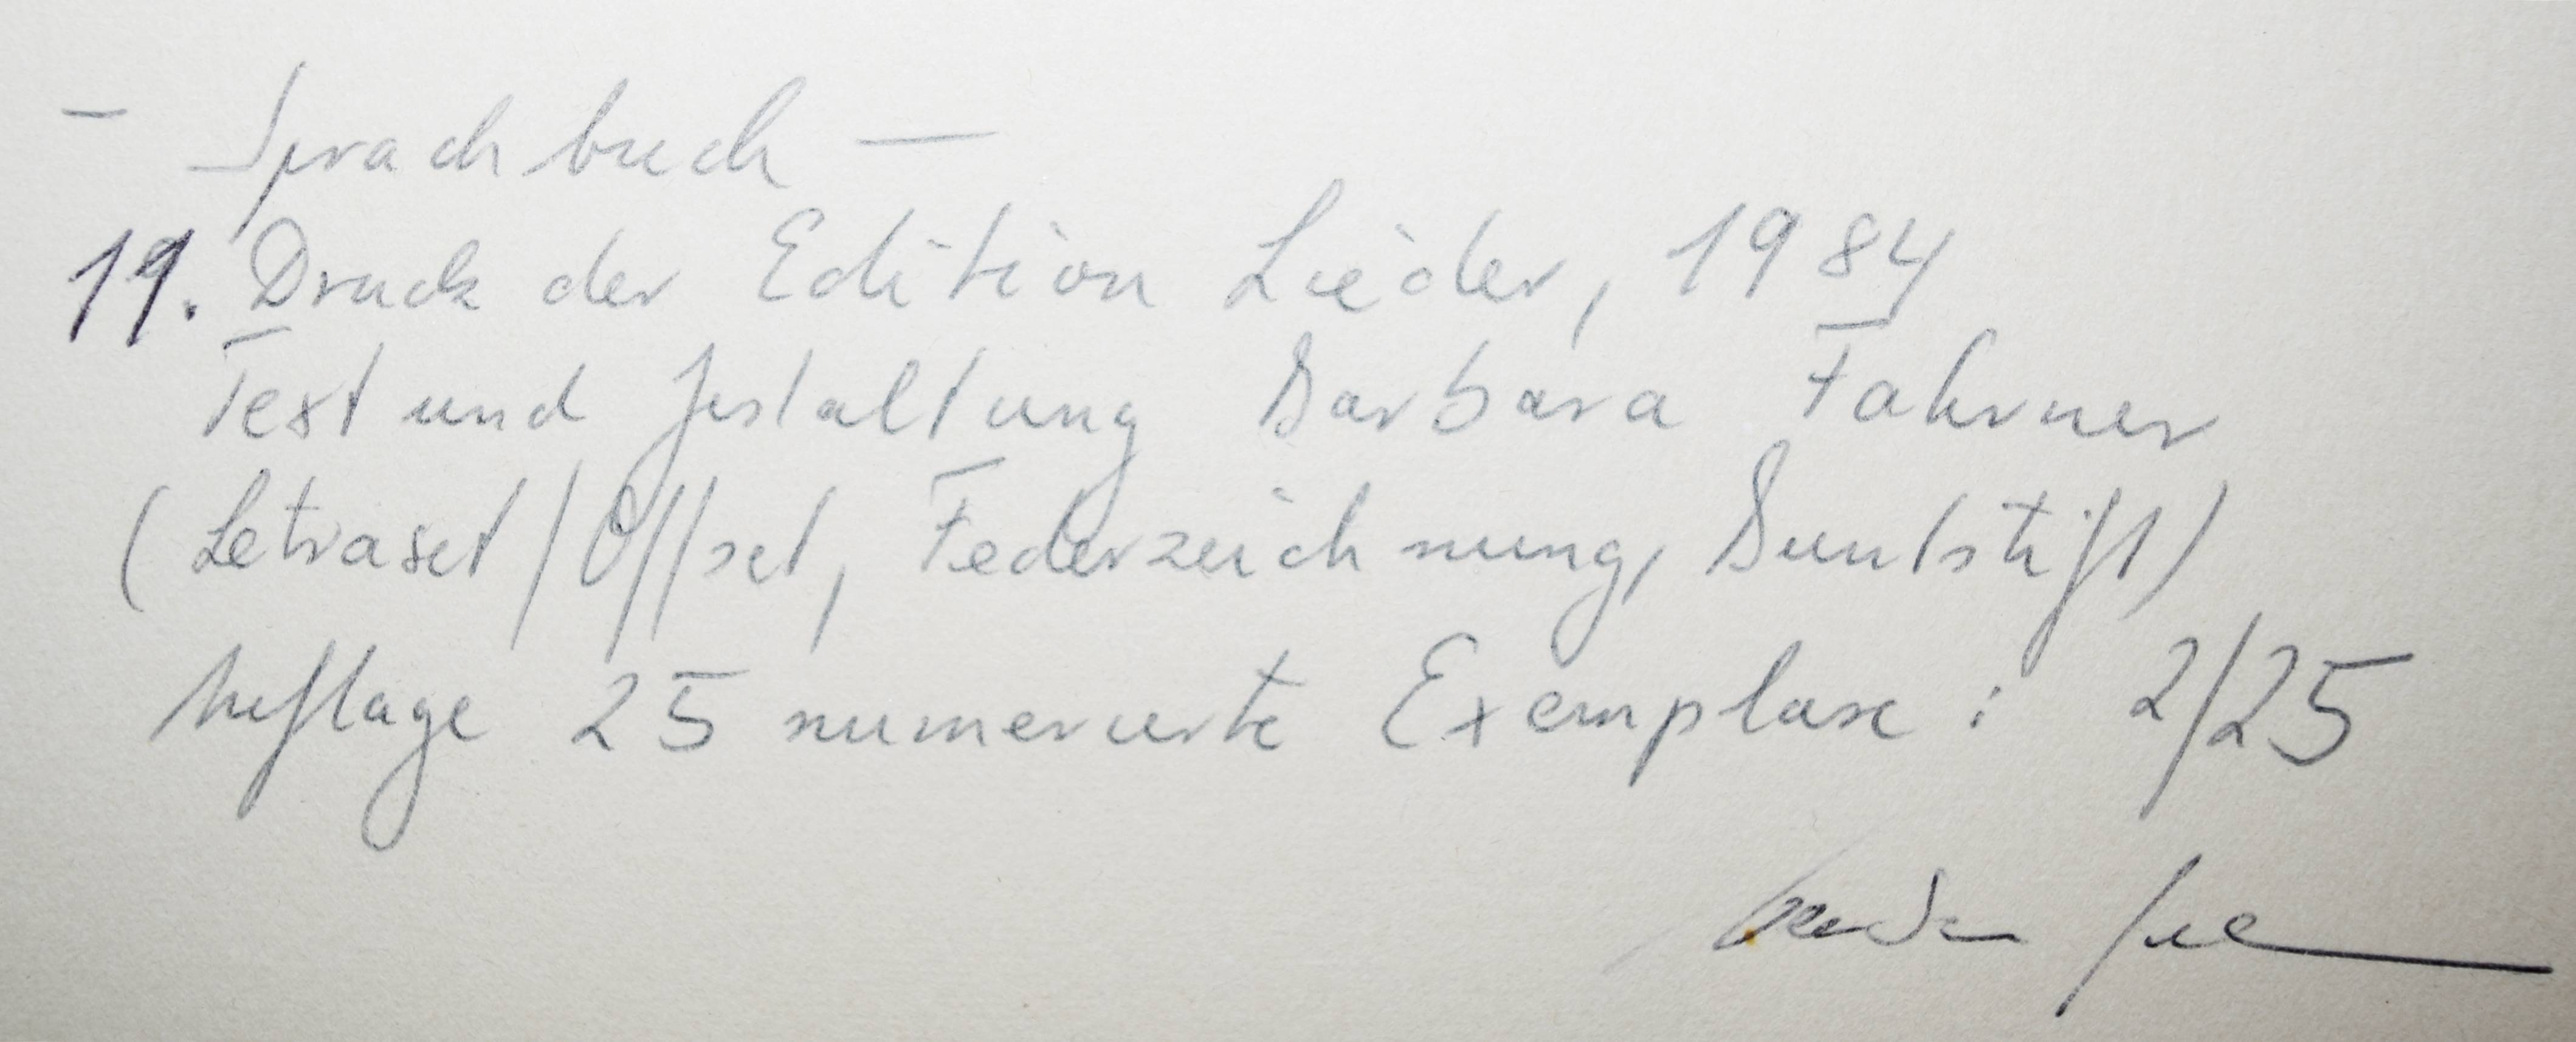 – Sprachbuch –
19. Druck der Edition Lieder, 1984
Text und Gestaltung Barbara Fahrner
(Letraset / Offset, Federzeichnung, Buntstift)
Auflage 25 numerierte Exemplare : 2/25